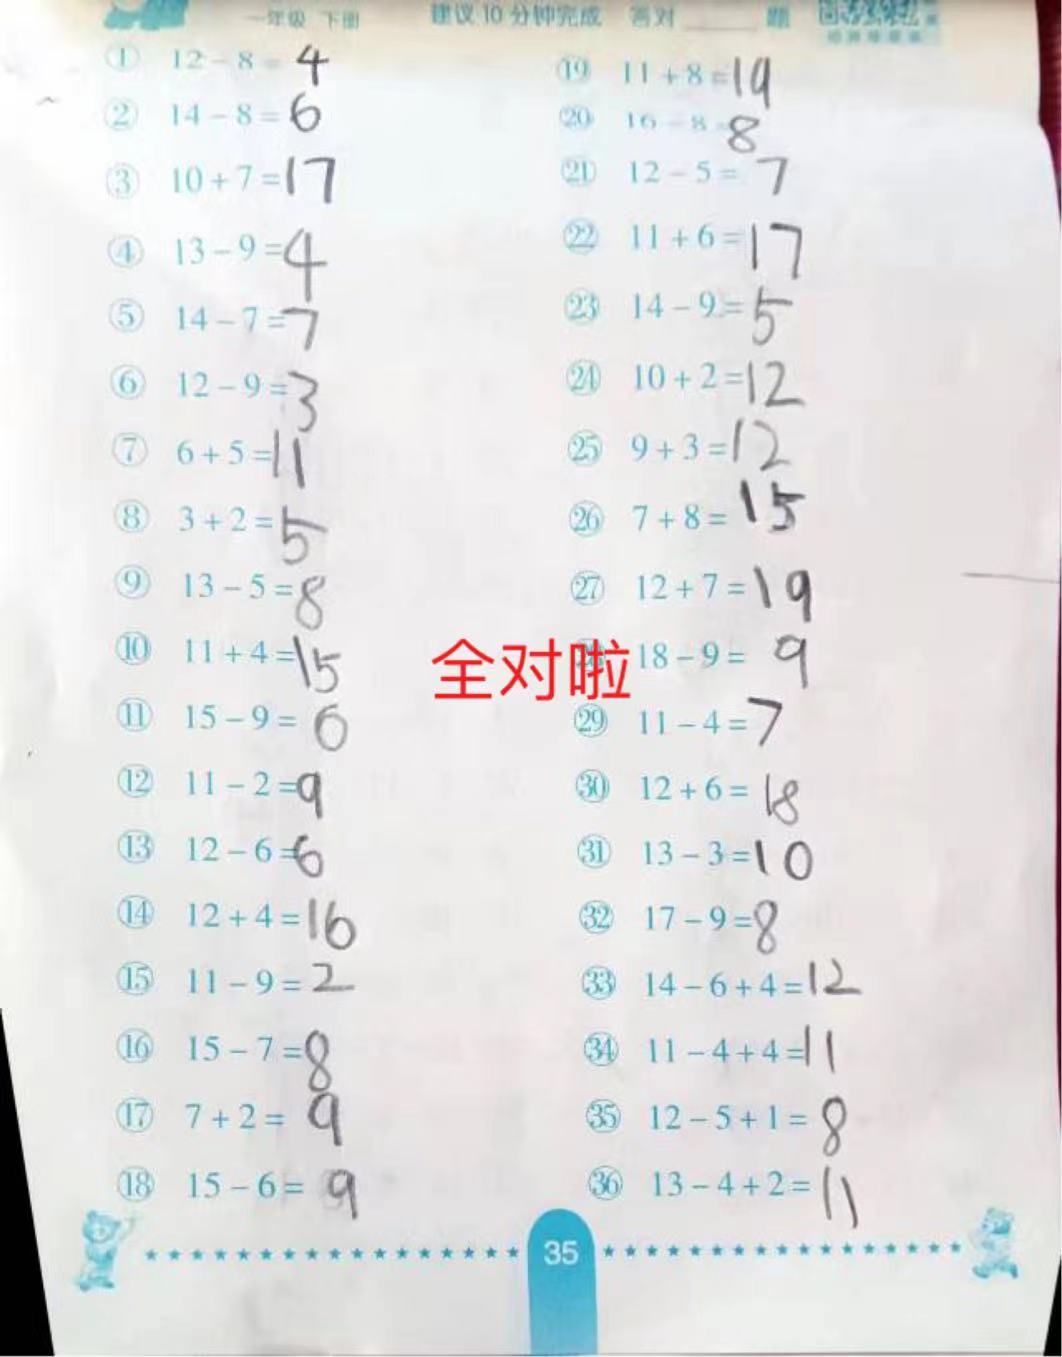 一年级 下册 建议10分钟完成 答对____题
① 12-8=4
② 14-8=6
③ 10+7=17
④ 13-9=4
⑤ 14-7=7
⑥ 12-9=3
⑦ 6+5=11
⑧ 3+2=5
⑨ 13-5=8
⑩ 11+4=15
⑪ 15-9=6
⑫ 11-2=9
⑬ 12-6=6
⑭ 12+4=16
⑮ 11-9=2
⑯ 15-7=8
⑰ 7+2=9
⑱ 15-6=9
⑲ 11+8=19
⑳ 16-8=8
㉑ 12-5=7
㉒ 11+6=17
㉓ 14-9=5
㉔ 10+2=12
㉕ 9+3=12
㉖ 7+8=15
㉗ 12+7=19
㉘ 18-9=9
㉙ 11-4=7
㉚ 12+6=18
㉛ 13-3=10
㉜ 17-9=8
㉝ 14-6+4=12
㉞ 11-4+4=11
㉟ 12-5+1=8
㊱ 13-4+2=11
全对啦
35